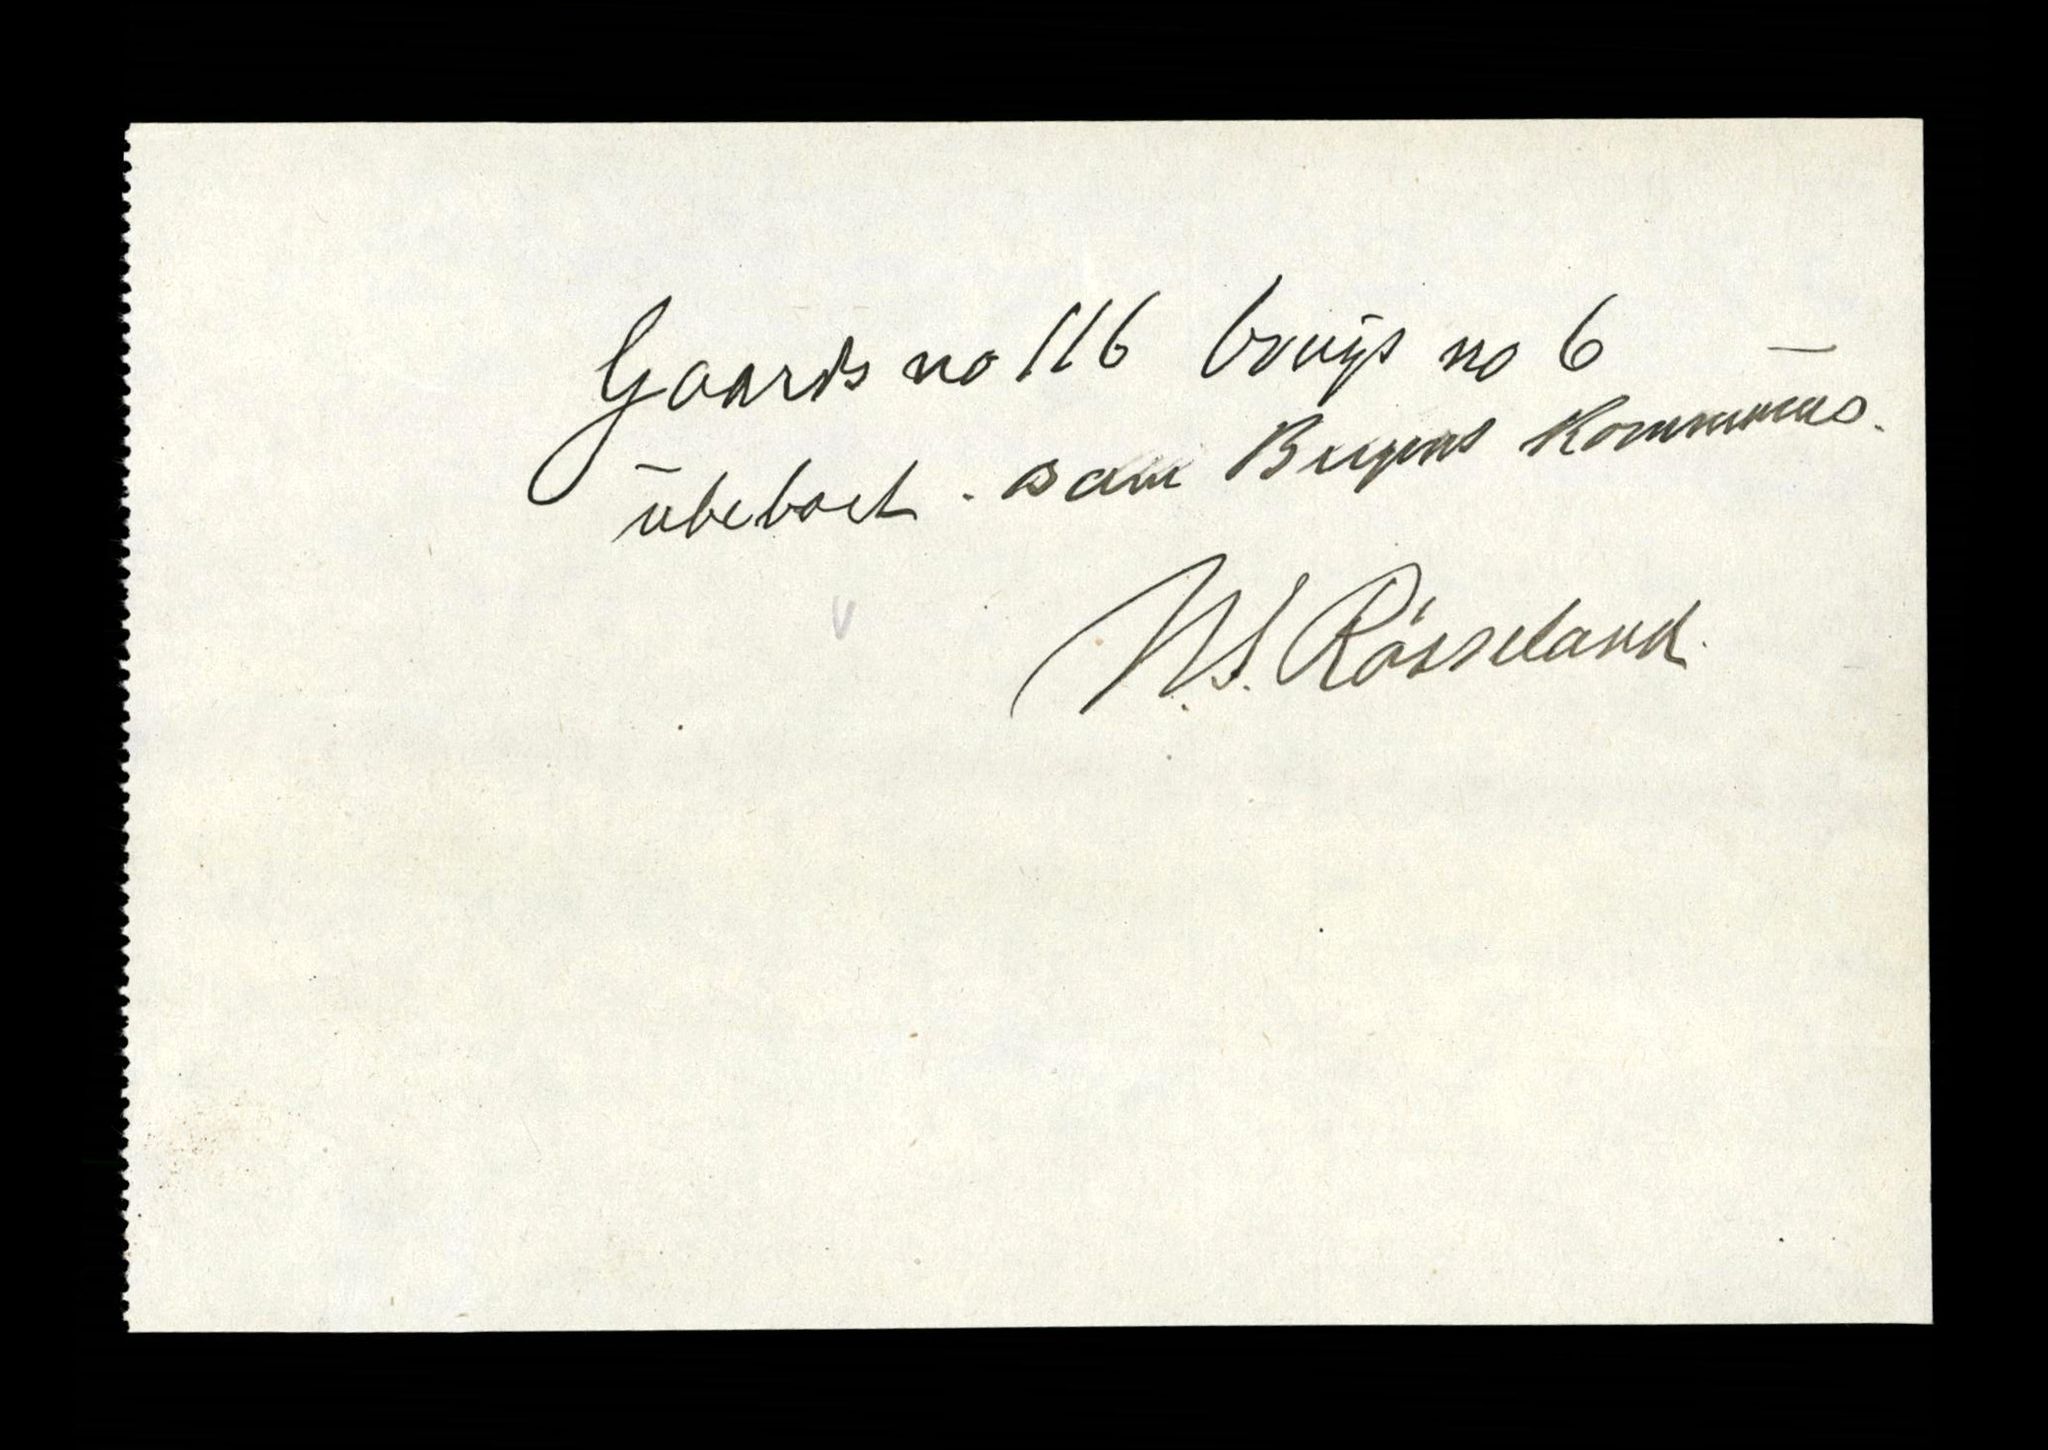 Gaards no 116 brugs no 6
ubeboet. Bergens Kommunes.
N.S. Rösseland.